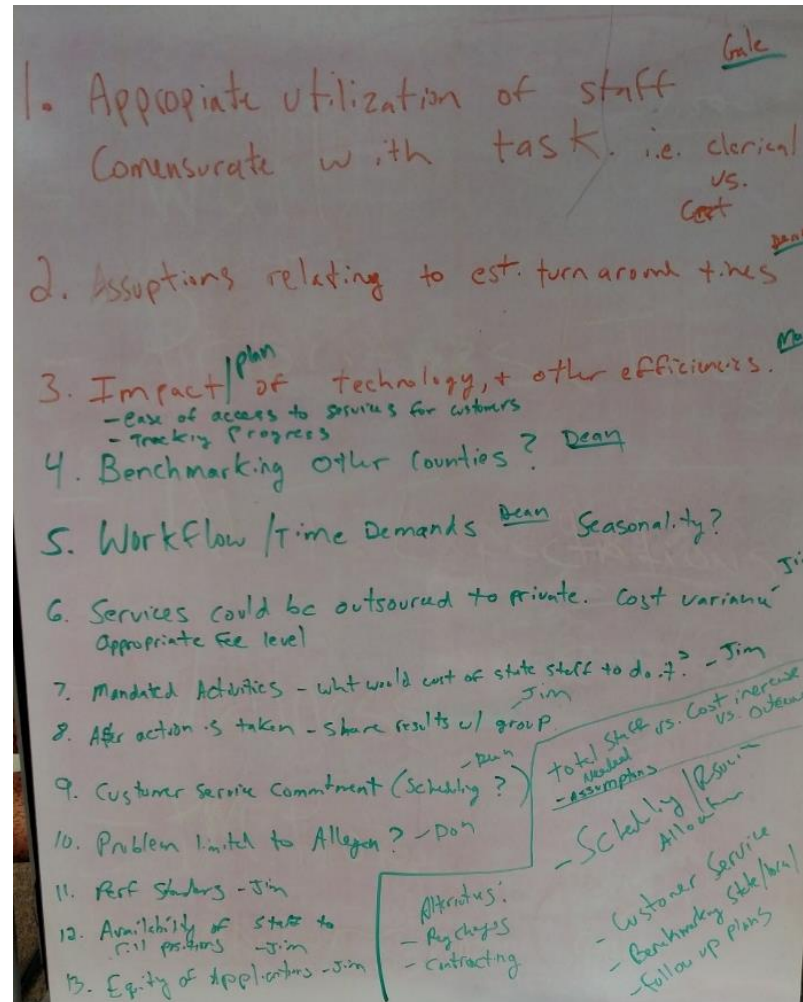 Gale
1. Appropiate utilization of staff
Comensurate with task. i.e. clerical
vs.
Cost
2. Assuptions relating to est. turn around times
3. Impact/plan of technology, + other efficiencies.
- ease of access to services for customers
- Tracking Progress
4. Benchmarking other Counties? Dean
5. Workflow/Time Demands Dean Seasonality?
6. Services could be outsourced to private. Cost variance
Appropriate Fee level
7. Mandated Activities - what would cost of state staff to do it? - Jim
8. After action is taken - share results w/ group - Jim
9. Customer Service Commitment (Scheduling?)
10. Problem limited to Allegan? - Don
11. Perf Standars - Jim
12. Availability of staff to
fill positions - Jim
13. Equity of Applications - Jim
total staff vs. Cost increase
needed vs.
- Assumptions
- Scheduling /
Allocation
- Customer Service
- Benchmarking state/local
- Follow up plans
Alternatives:
- Reg Changes
- Contracting